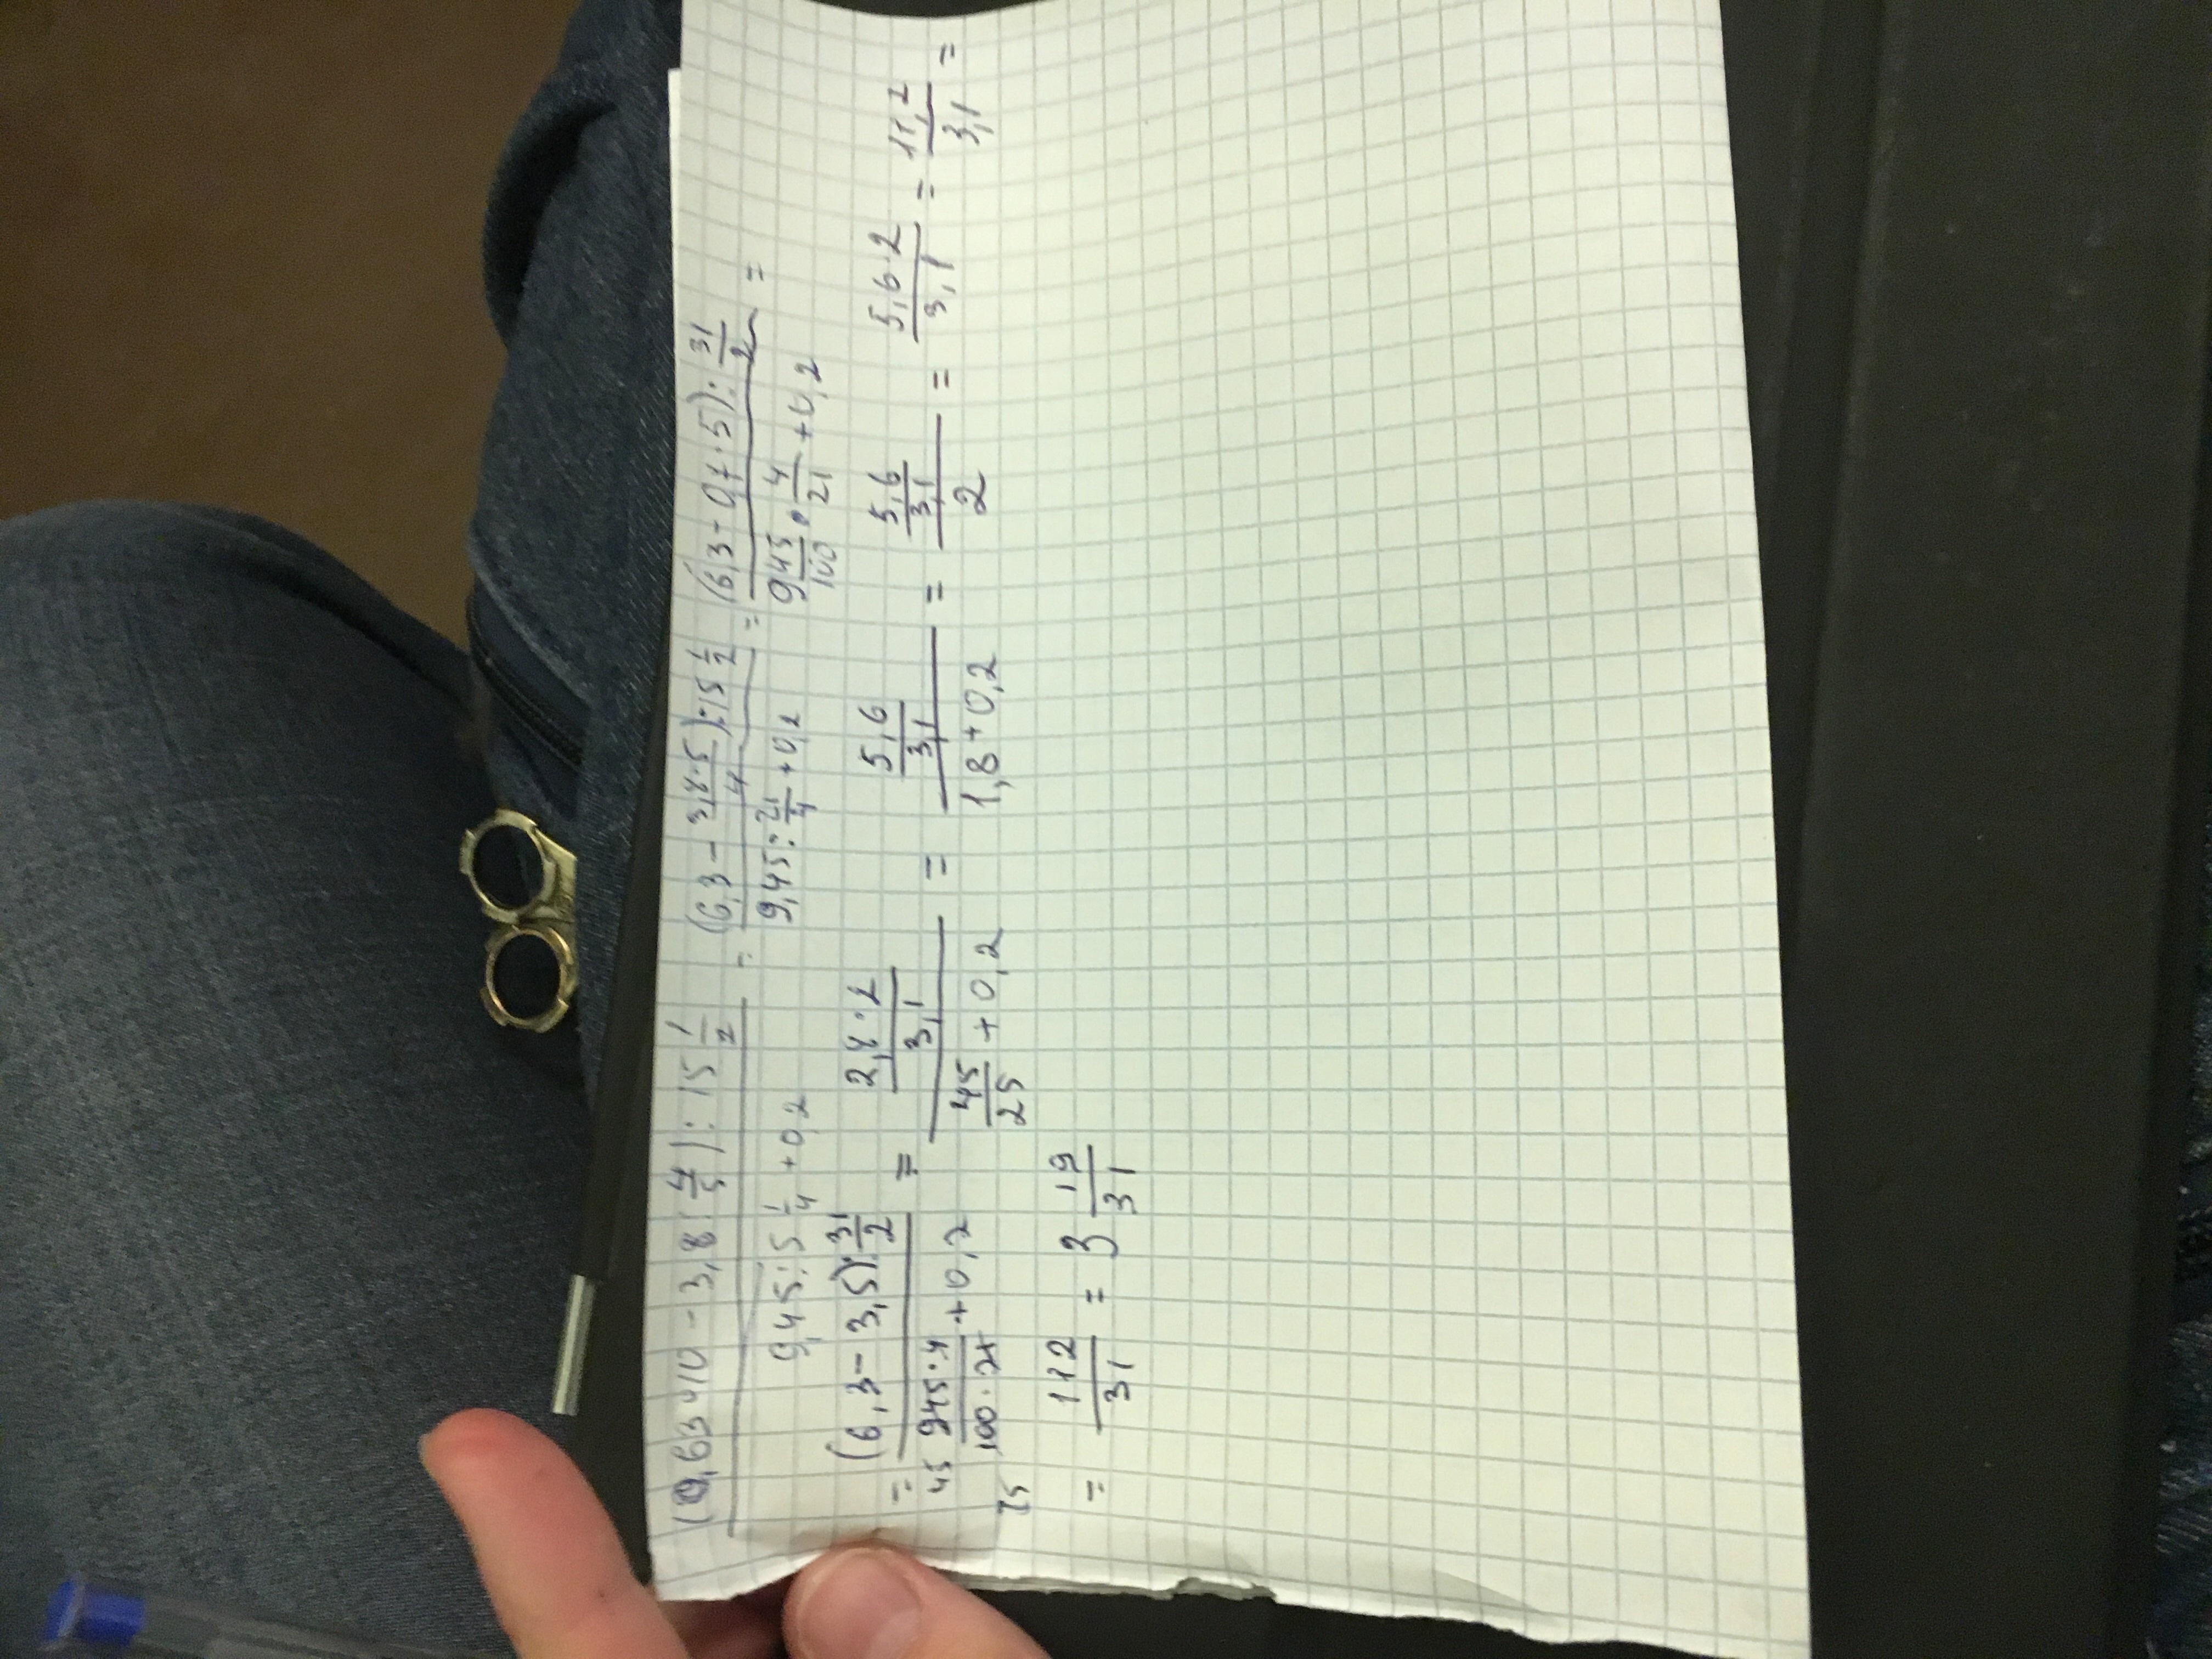 (0,63·10 - 3,8 : 4/5) : 15 1/2 / 9,45 : 5 1/4 + 0,2 = (6,3 - 3,8·5/4) : 15 1/2 / 9,45 : 21/4 + 0,2 = (6,3 - 0,7·5) : 31/2 / 9 45/100 · 4/21 + 0,2 =
= (6,3 - 3,5) : 31/2 / 45 945·4 / 25 100·21 + 0,2 = 2,8·2/3,1 / 45/25 + 0,2 = 5,6/3,1 / 1,8 + 0,2 = 5,6/3,1 / 2 = 5,6·2/3,1 = 11,2/3,1 =
= 112/31 = 3 19/31